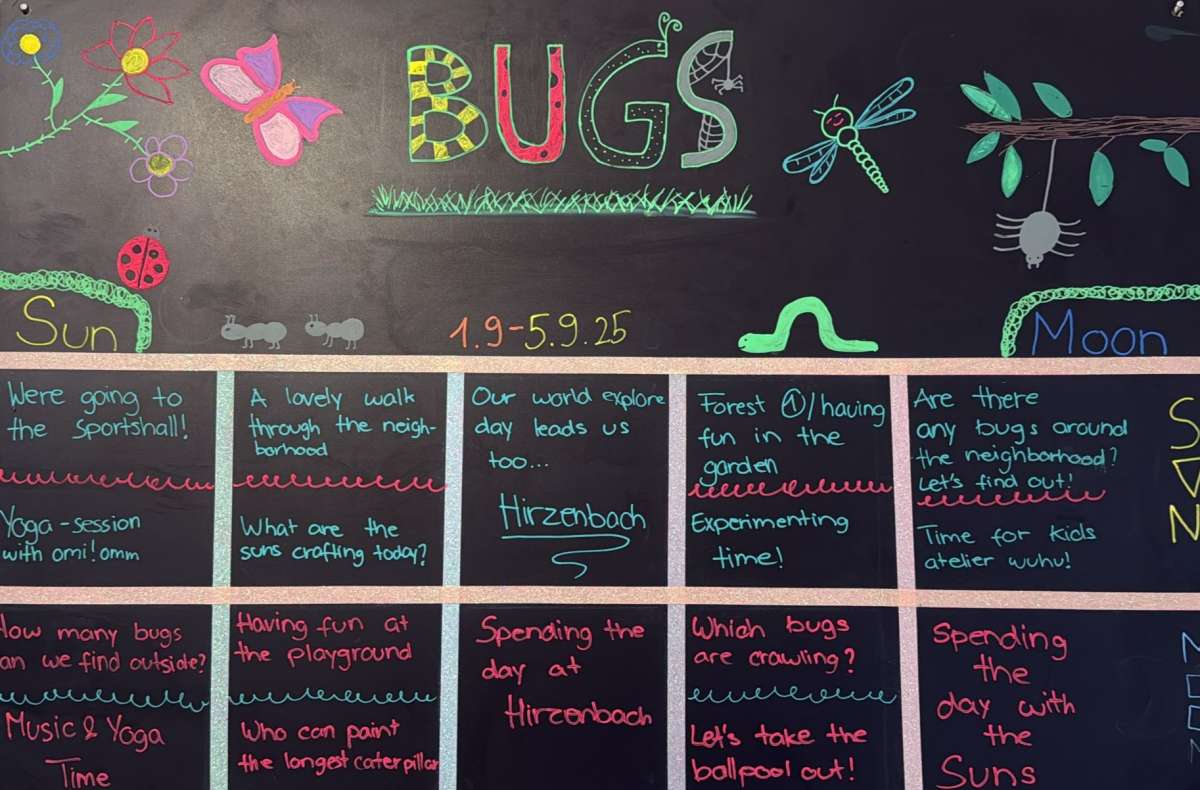 BUGS
Sun
1.9-5.9.25
Moon
Were going to
the Sportshall!
Yoga-session
with omi! omm
A lovely walk
through the neigh-
borhood
What are the
suns crafting today?
Our world explore
day leads us
too...
Hirzenbach
Forest ①/having
fun in the
garden
Experimenting
time!
Are there
any bugs around
the neighborhood?
Let's find out!
Time for kids
atelier wuhu!
How many bugs
can we find outside?
Music & Yoga
Time
Having fun at
the playground
Who can paint
the longest caterpillar
Spending the
day at
Hirzenbach
Which bugs
are crawling?
Let's take the
ballpool out!
Spending
the
day with
the
Suns